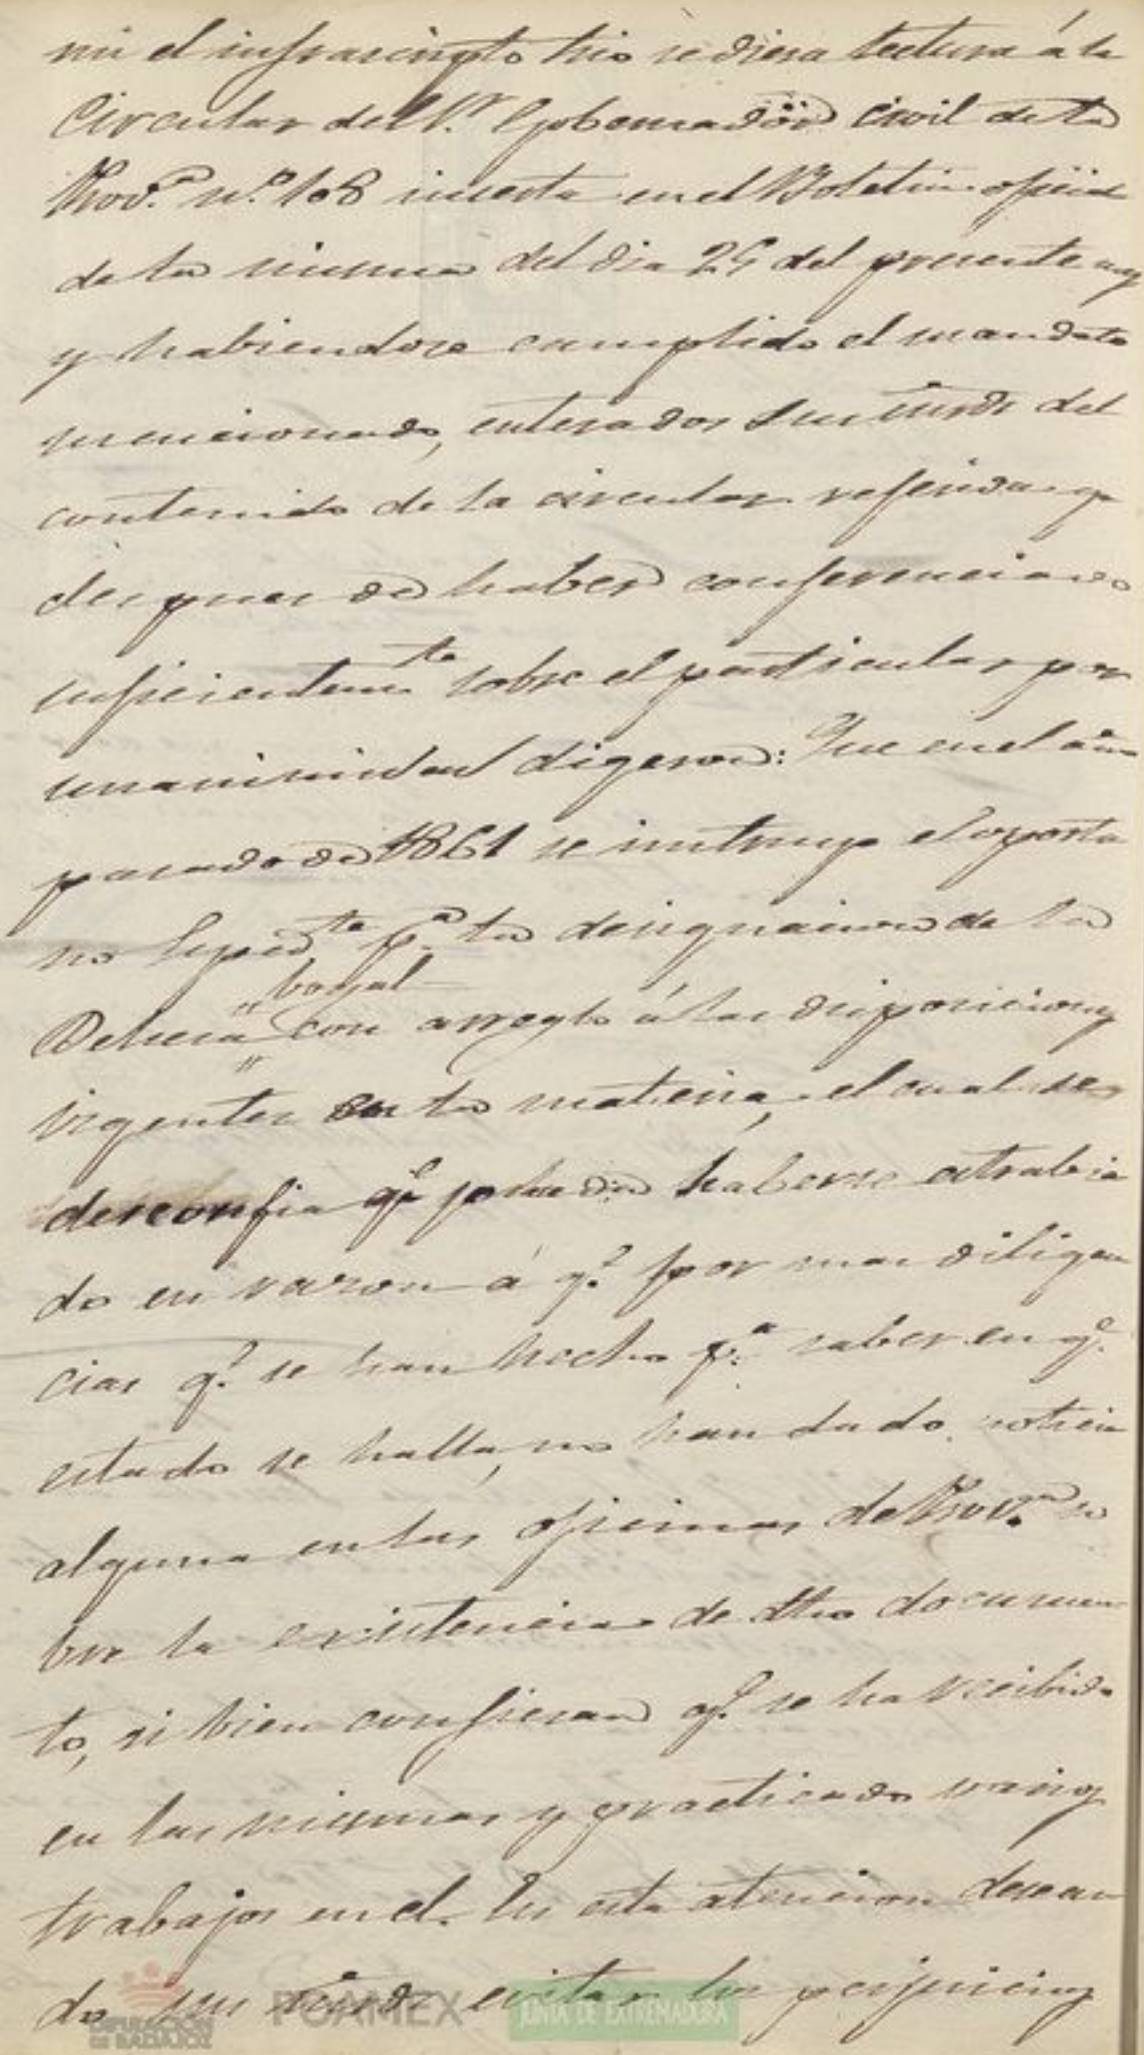 mi el infrascripto hio se diera lectura á la
Circular del Sr. Gobernador civil de la
Prov.ª n.º 108 inserta en el Boletin oficial
de la misma del dia 25 del presente mes
y habiendose cumplido el mandato
mencionado, enterados sus mrds del
contenido de la circular referida y
despues de haber conferenciado
suficientem.te sobre el particular por
unanimidad digeron: Que en el año
pasado de 1861 se instruyo el oportu
no Esped.te p.ª la designacion de la
boyal
Dehesa " con arreglo á las disposiciones
vigentes en la materia, el cual se
desconfia q.e pueda haberse estrabia
do en razon á q.e por mas diligen
cias q.e se han hecho p.ª saber en q.e
estado se halla, no han dado noticia
alguna en las oficinas de Prov.ª so
bre la existencia de dho documen
to, si bien confiesan q.e se ha recibido
en las mismas y practicado varios
trabajos en el. En esta atencion desean
do sus mrds evitar los perjuicios
DIPUTACIÓN DE BADAJOZ
PCAMEX
JUNTA DE EXTREMADURA